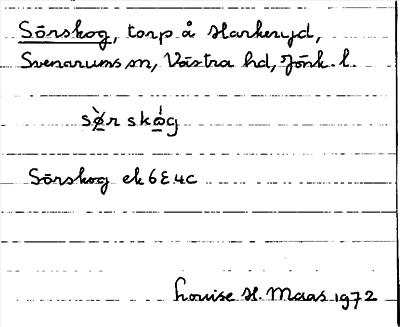 Sörskog, torp å Harkeryd,
Svenarums sn, Västra hd, Jönk. l.
sø̀r skó̱g
Sörskog ek 6E4c
Louise H. Maas 1972